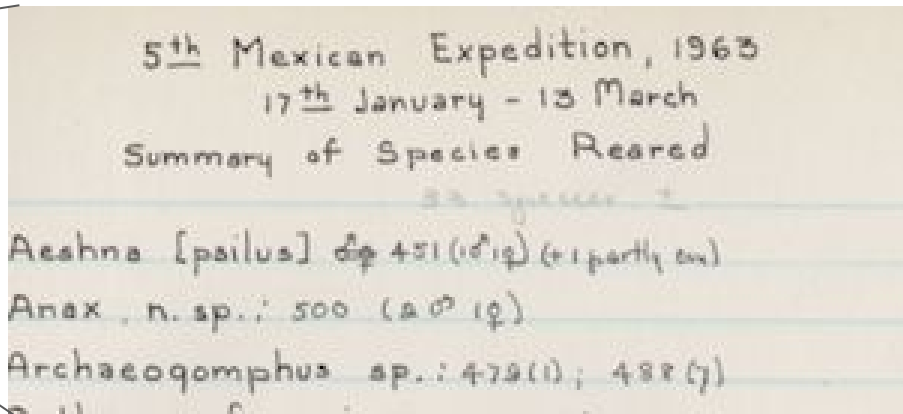 5th Mexican Expedition, 1963
17th January - 13 March
Summary of Species Reared
33 species ±
Aeshna [psilus] ♂♀ 451 (1♂1♀) (+ 1 partly em)
Anax n. sp.: 500 (2♂ 1♀)
Archaeogomphus sp.: 479(1); 488(7)